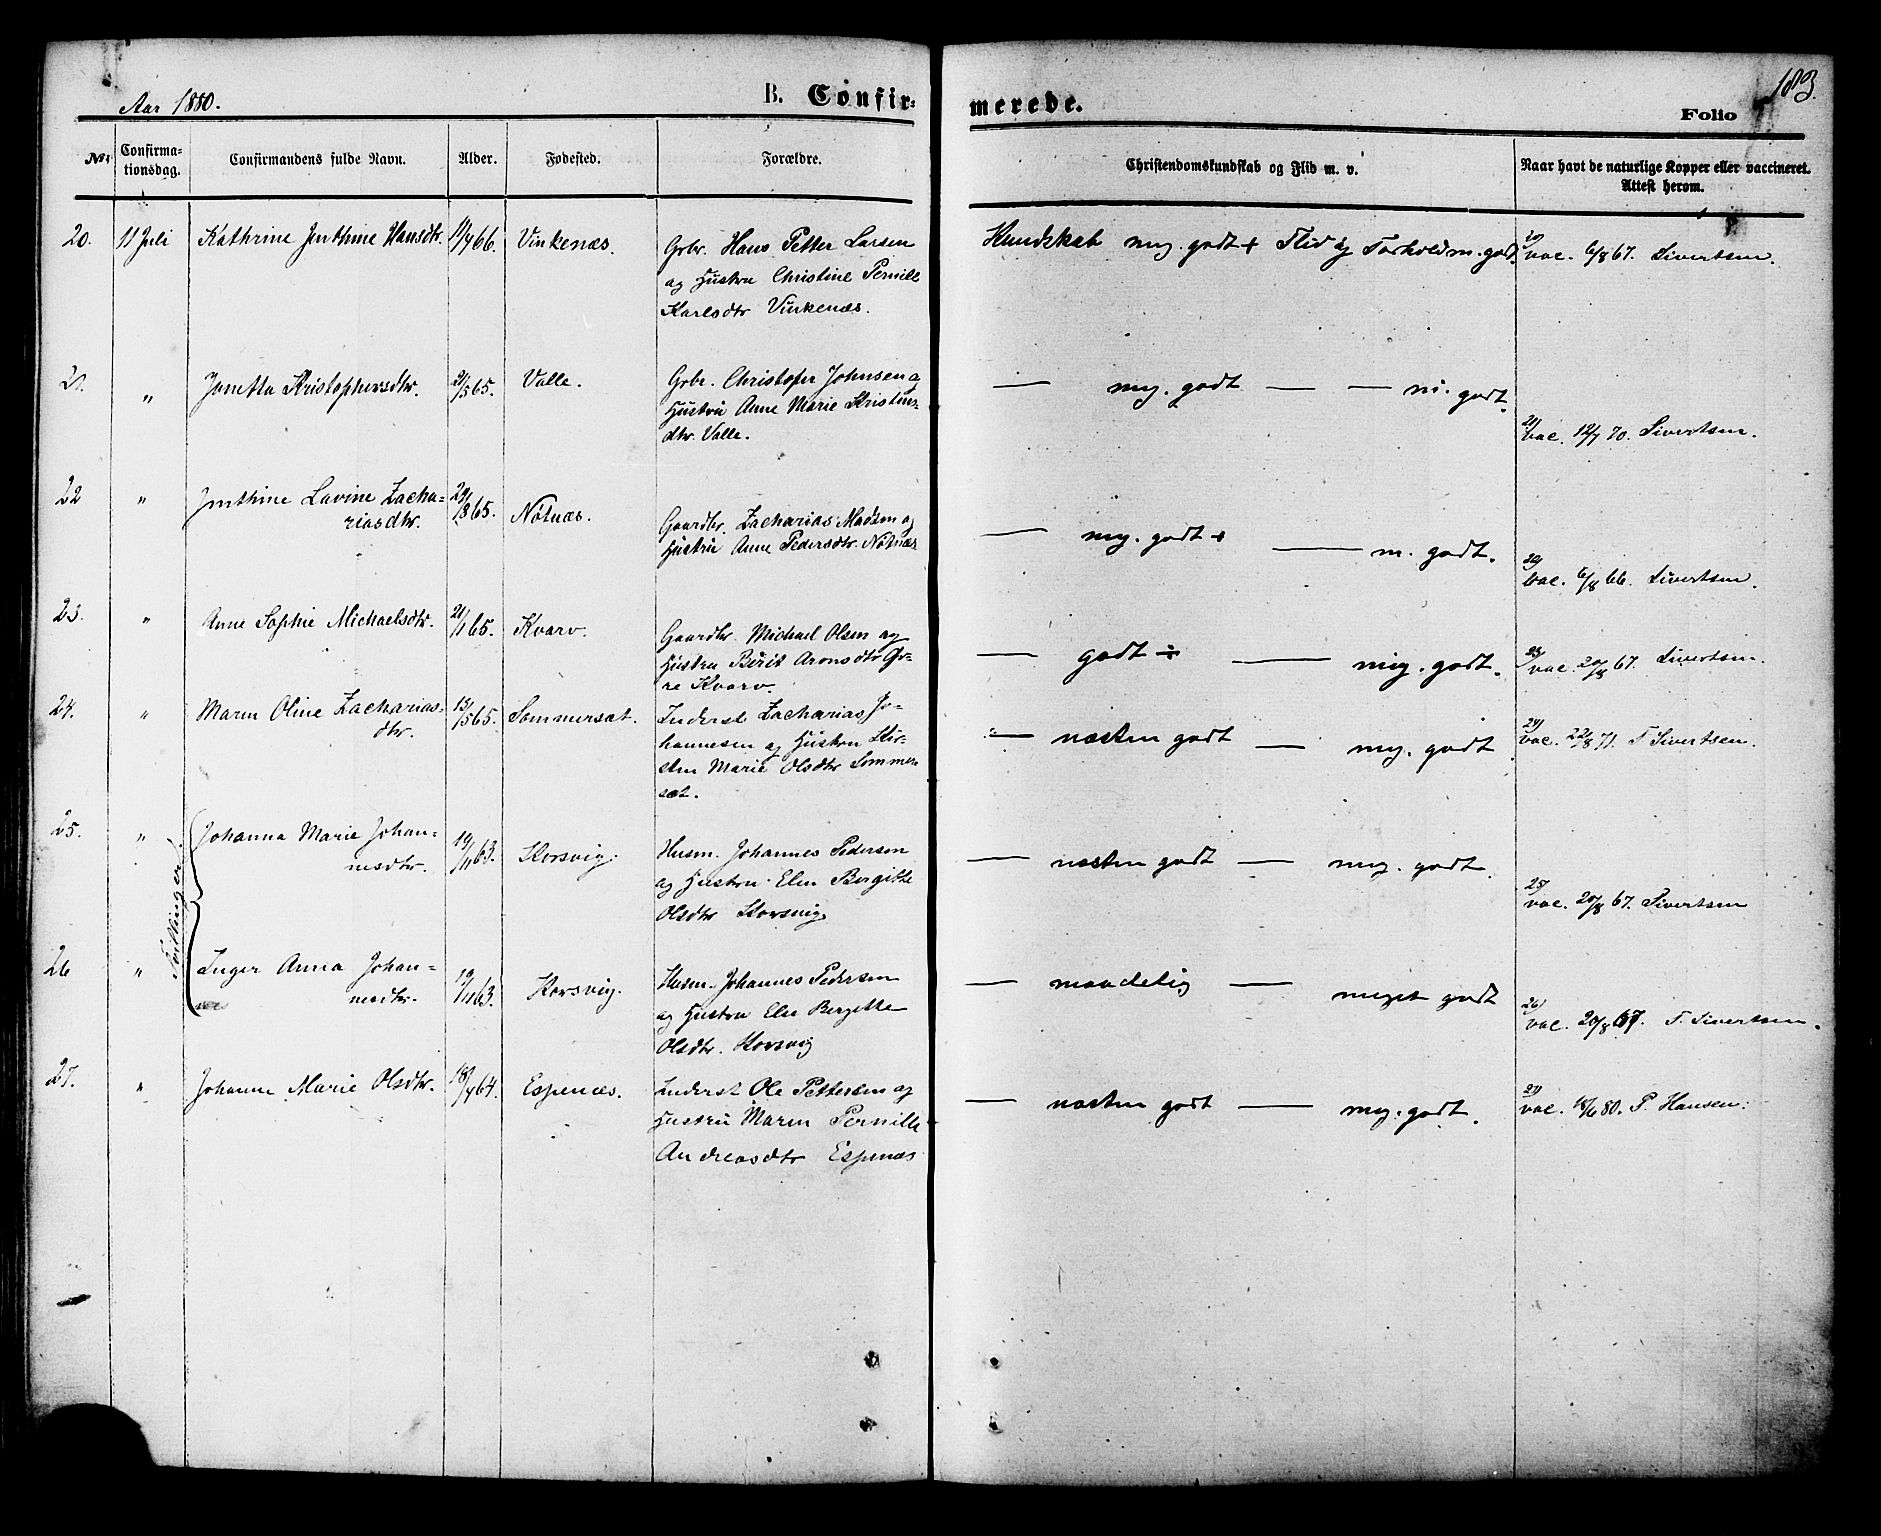 Aar 1880.
B. Confir-
merede.
183.
Folio
No.
Confirma-
tionsdag.
Confirmandens fulde Navn.
Alder.
Fødested.
Forældre.
Christendomskundskab og Flid m. v.
Naar havt de naturlige Kopper eller vaccineret.
Attest herom.
20. 11 Juli Kathrine Jenthine Hansdtr. 11/4 66. Vinkenæs.
Grbr. Hans Petter Larsen
og Hustru Christine Pernille
Karlsdtr Vinkenæs.
Kundskab meg. godt + Flid og Forhold m. godt.
20) vac. 6/8 67. Sivertsen.
21. " Jonetta Kristophersdtr. 21/5 65. Valle.
Grbr. Christofer Johnsen og
Hustru Anne Marie Kristens-
dtr. Valle.
— meg. godt — — m. godt.
21) vac. 12/7 70. Sivertsen.
22 " Jenthine Lavine Zacha-
riasdtr. 29/8 65. Nøtnæs.
Gaardbr. Zacharias Madsen og
Hustru Anne Pedersdtr. Nøtnæs
— meg. godt + — m. godt.
22) vac. 6/8 66. Sivertsen.
23. " Anne Sophie Michaelsdtr. 21/1 65. Kvarv.
Gaardbr. Michael Olsen og
Hustru Berit Aronsdtr Øv-
re Kvarv.
— godt ÷ — meg. godt.
23) vac. 20/8 67. Sivertsen.
24. " Maren Oline Zacharias-
dtr. 15/5 65. Sommersæt.
Inderst Zacharias Jo-
hannesen og Hustru Kir-
sten Marie Olsdtr Sommer-
sæt.
— næsten godt — meg. godt
24) vac. 22/8 71. T Sivertsen.
Tvillinger.
25. " Johanna Marie Johan-
nesdtr. 19/11 63. Korsvig.
Husm. Johannes Pedersen
og Hustru Elen Bergitte
Olsdtr Korsvig
— næsten godt — meg. godt.
25) vac. 20/8 67. Sivertsen
26 " Inger Anna Johan-
nesdtr. 19/11 63. Korsvig.
Husm. Johannes Pedersen
og Hustru Elen Bergitte
Olsdtr. Korsvig
— maadelig — meget godt
26) vac. 20/8 67. T. Sivertsen.
27. " Johanne Marie Olsdtr. 18/4 64. Espenæs.
Inderst Ole Pettersen og
Hustru Maren Pernille
Andreasdtr Espenæs
— næsten godt — meg. godt.
27) vac. 18/6 80. P. Hansen.